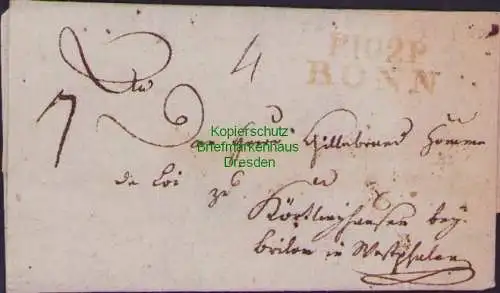 P102P
BONN
4
7
An
den Herrn Hillebrand Homme
de Loi zu
Körtlinghausen bey
Brilon in Westphalen
Kopierschutz
Briefmarkenhaus
Dresden